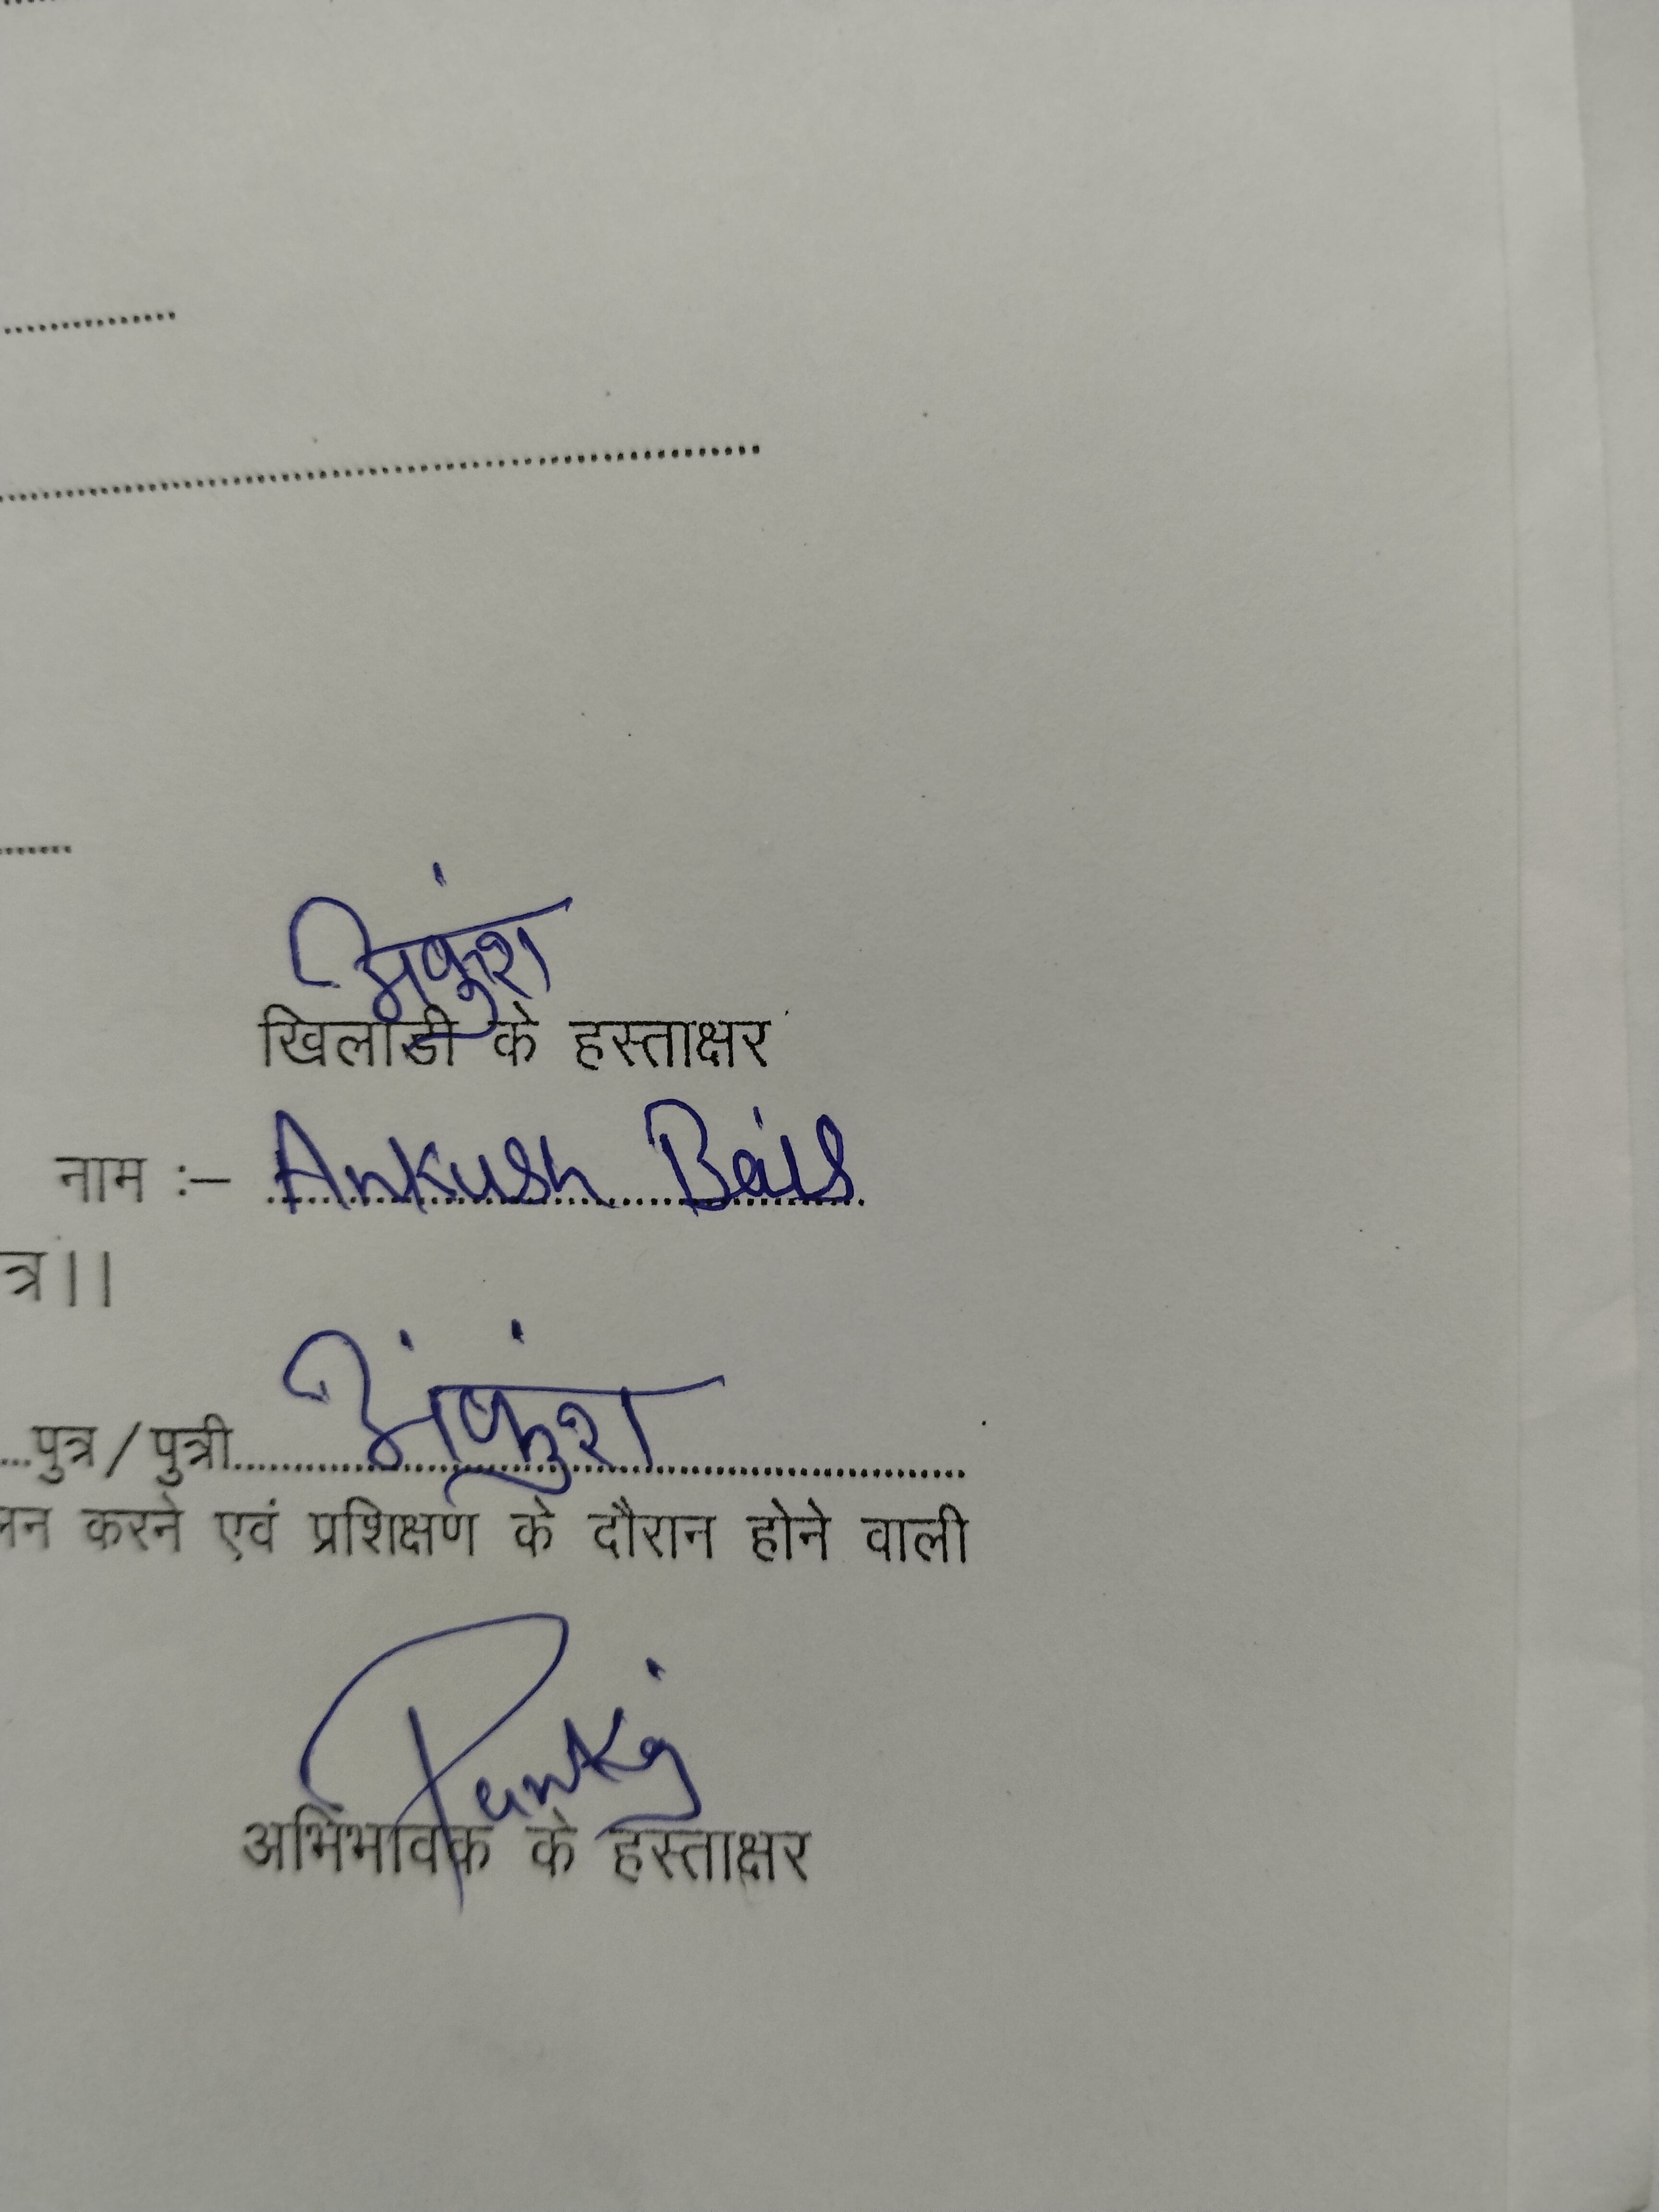 अंकुश
खिलाडी के हस्ताक्षर
नाम :– Ankush Bais
त्र।।
पुत्र/पुत्री अंकुंश
करने एवं प्रशिक्षण के दौरान होने वाली
Pankaj
अभिभावक के हस्ताक्षर